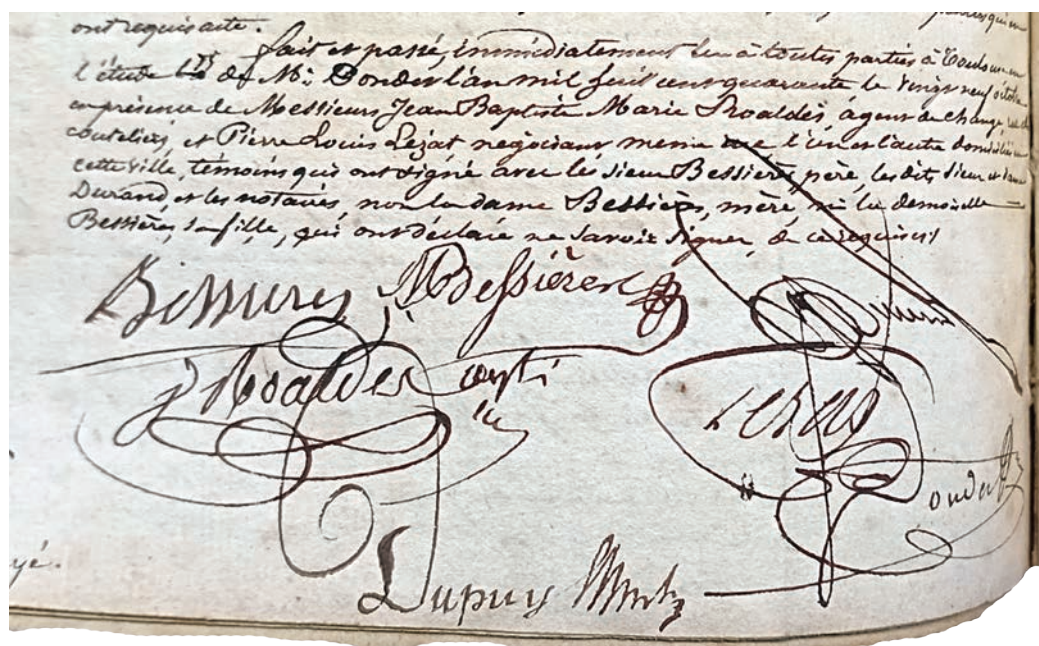 ont requisarte.
fait et passé, immédiatement lu à toutes parties à Toulouse en
l'étude de Me. Donder l'an mil huit cent quarante le vingt neuf octobre
en présence de Messieurs Jean Baptiste Marie Roaldès, agent de change, rue
couteliers, et Pierre Louis Lézat négociant même rue l'un et l'autre domiciliés en
cette ville, témoins qui ont signé avec le sieur Bessières père, les dits sieur et dame
Durand, et les notaires, non la dame Bessières, mère, ni la demoiselle
Bessières, sa fille, qui ont déclaré ne savoir signer, de ce requises
Bessieres Bessières
J Roaldès Lezat
Dupuy
yé.